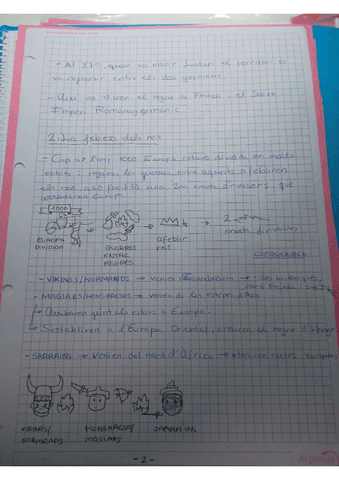 - Al 870, quan va morir Lotari el territori es
va repartir entre els dos germans.
- Així va néixer el regne de França i el Sacre
Imperi Romanogermànic.
2. La feblesa dels reis
- Cap a l'any 1000 Europa estava dividida en molts
estats i regnes, les guerres entre aquests afebliren
els reis, això facilità una 2na onada d'invasors que
Europa.
1000
2
EUROPA
DIVIDIDA
GUERRES
ENTRE
REGNES
afeblir
reis
onada d'invasors
- VIKINGS/NORMANDS → venien d'Escandinàvia
- MAGIARS/HONGARESOS → venien de les estepes d'Àsia
Arribaren junt als eslaus a Europa.
S'establiren a l'Europa Oriental, crearen el regne d'Hongria
- SARRAÏNS → Venien del nord d'Àfrica → costes europees
VIKINGS/
NORMANDS
HONGARESOS/
MAGIARS
SARRAÏNS
- 2 -